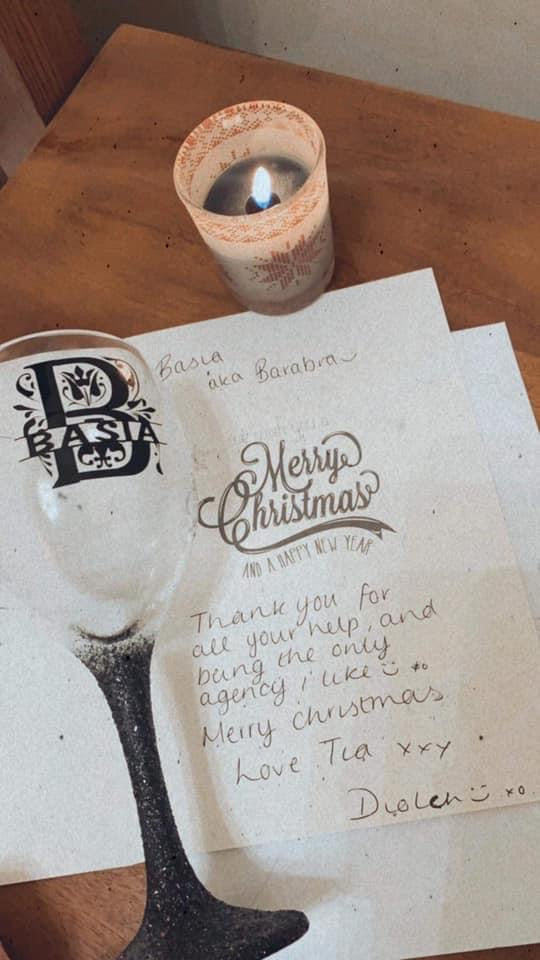 Basia
aka Barabra
B
BASIA
Merry
Christmas
AND A HAPPY NEW YEAR
Thank you for
all your help, and
being the only
agency i like
Merry Christmas
Love Tia xxy
Diolch xo